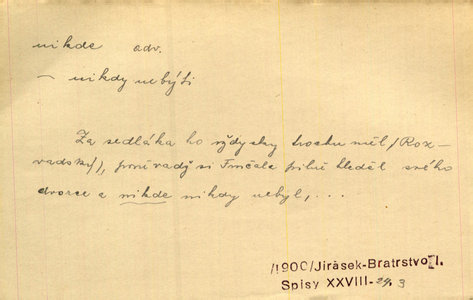 nikde adv.
– nikdy nebýti
Za sedláka ho vždycky trochu měl /Roz-
vadský/, první radě si Trnčala pilně hleděl svého
dvorce a nikde nikdy nebyl, ...
/1900/Jirásek-Bratrstvo I.
Spisy XXVIII-29,3